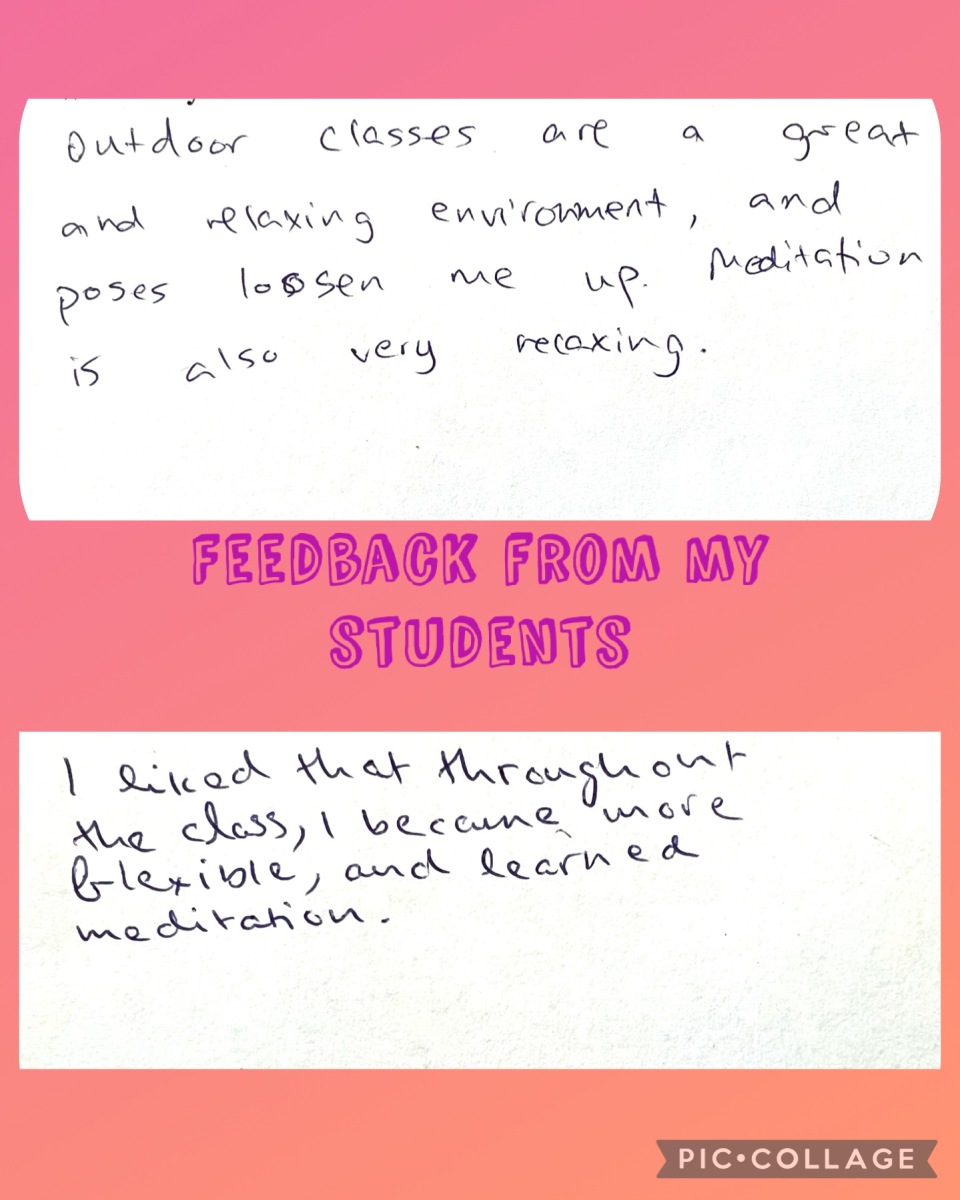 Outdoor classes are a great
and relaxing environment, and
poses loosen me up. Meditation
is also very relaxing.
FEEDBACK FROM MY
STUDENTS
I liked that throughout
the class, I became more
flexible, and learned
meditation.
PIC•COLLAGE